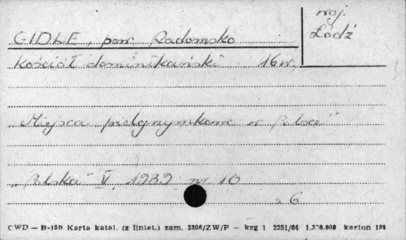 woj. Łódź
GIDLE, pow. Radomsko
Kościół dominikański 16 w.
„Miejsca pielgrzymkowe w Polsce"
„Polska" V, 1939, nr 10
s 6
CWD — B-13D Karta katal. (z liniat.) zam. 2304/ZW/P — krg 1 2251/64 karton